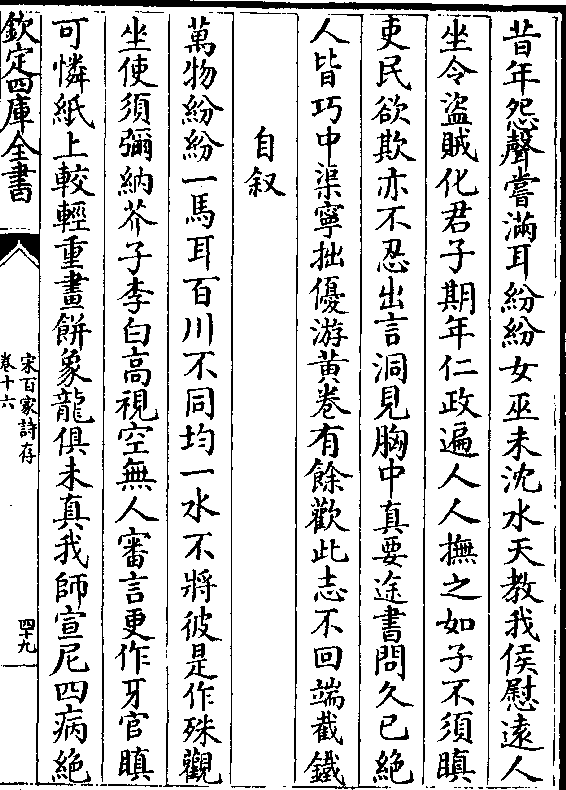 昔年怨聲嘗滿耳紛紛女巫未沈水天教我侯慰遠人
坐令盜賊化君子期年仁政遍人人撫之如子不須瞋
吏民欲欺亦不忍出言洞見胸中真要途書問久已絶
人皆巧中渠寧拙優游黃卷有餘歡此志不回端截鐵
自叙
萬物紛紛一馬耳百川不同均一水不將彼是作殊觀
坐使須彌納芥子李白高視空無人審言更作牙官瞋
可憐紙上較輕重畫餅象龍俱未真我師宣尼四病絶
欽定四庫全書
宋百家詩存
卷十六
四十九